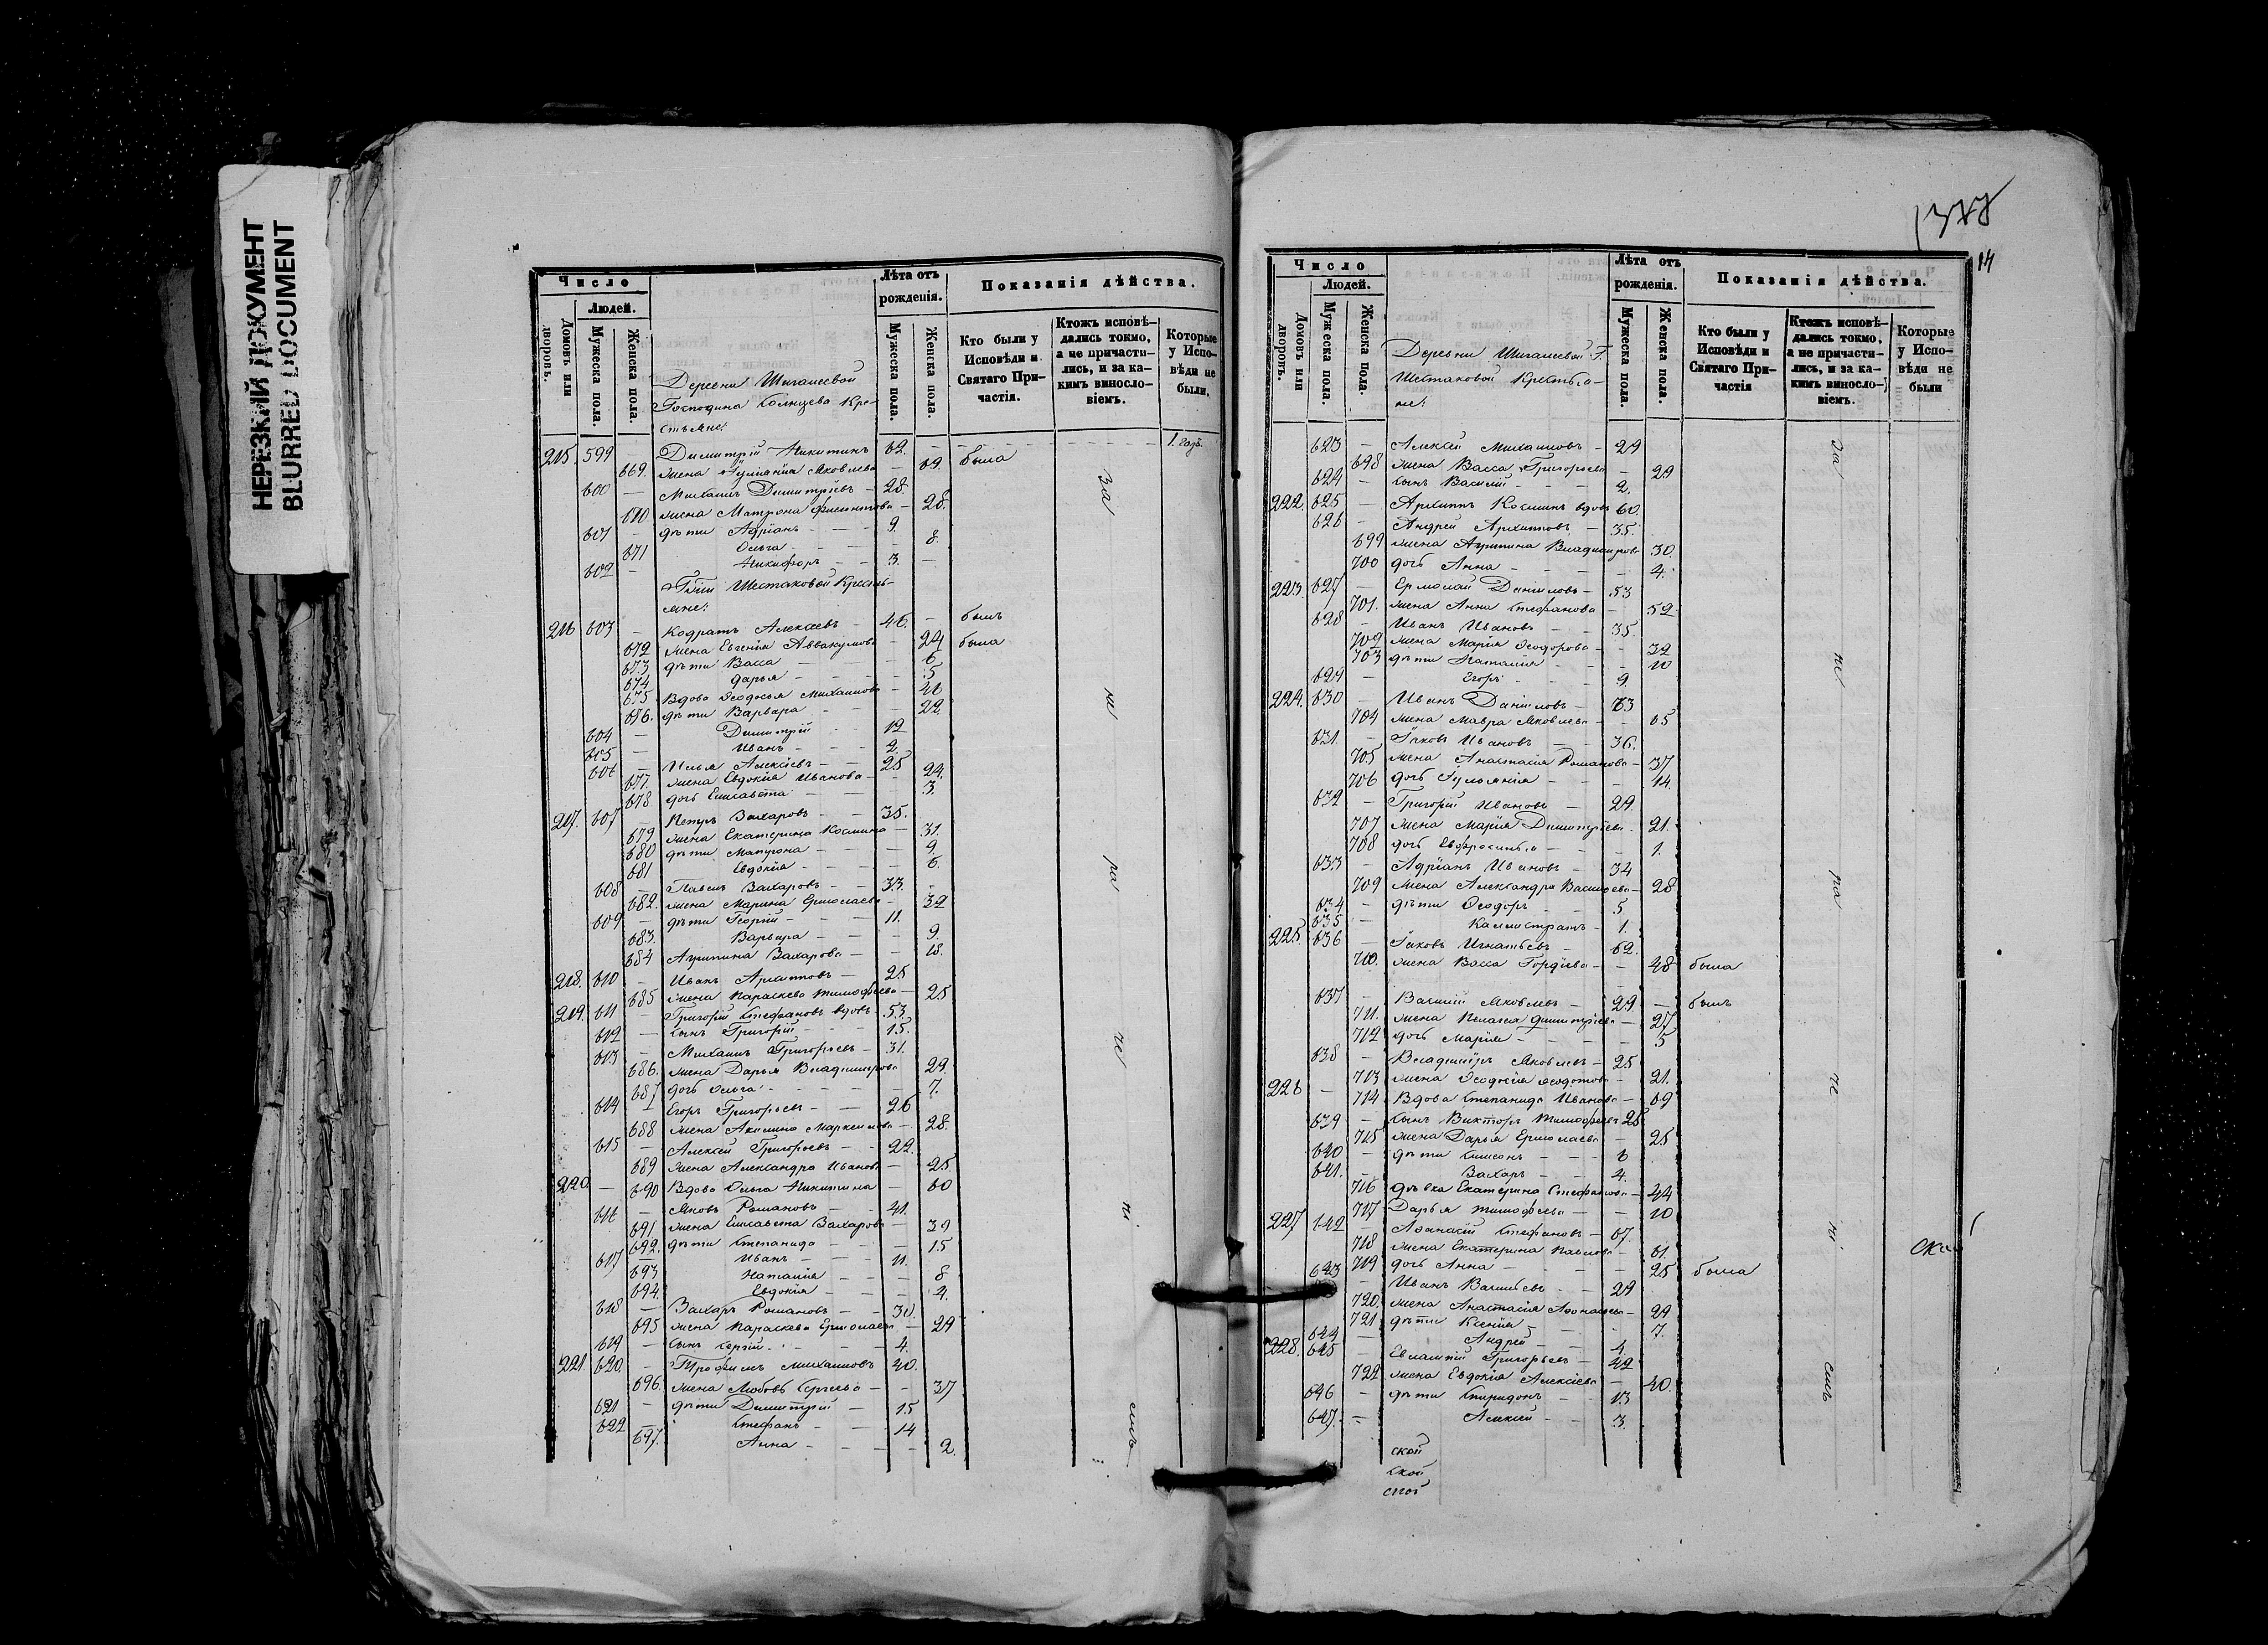 НЕРЕЗКИЙ ДОКУМЕНТ
BLURRED DOCUMENT
Число
Людей.
Домовъ или дворовъ.
Мужеска пола.
Женска пола.
Лѣта отъ рожденія.
Мужеска пола.
Женска пола.
Показанія дѣйства.
Кто были у Исповѣди и Святаго Причастія.
Ктожъ исповѣдались токмо, а не причастились, и за какимъ винословіемъ.
Которые у Исповѣди не были.
Деревни Шигалеевой
Господина Кре-
стьяне:
215. 599 — Димитрій Никитинъ 62. — 1. годъ.
669. жена Іуліанія Яковлева — 62. была
600 — Михаилъ Димитріевъ — 28.
670 жена Матрона — 28.
601 — дѣти Адріанъ — 9.
671 Ольга — 8.
602 — Никифоръ — 3. —
Г-жи Шестаковой Кресть-
яне:
216 603 — Кодратъ Алексѣевъ — 46. — былъ
672 жена Евгенія Аввакумова — 24 была
673 дѣти Васса — 6
674 Дарья — 5
675 Вдова Ѳеодосья Михаилова —
676. дѣти Варвара — 22.
604 — Димитрій — 12
605 — Иванъ — 2.
606 — Илья Алексѣевъ — 25
677. жена Евдокія Иванова — 24.
678 дочь Елисавета — 3.
217. 607 — Петръ Захаровъ — 35.
679 жена Екатерина Космина — 31.
680 дѣти Матрона — 9.
681 Евдокія — 6.
608 — Павелъ Захаровъ — 33.
682. жена Марина Ермолаева — 32
609 — дѣти Георгій — 11.
683. Варвара — 9.
684 Агрипина Захарова — 18.
218. 610 — Иванъ Архиповъ — 25
685 жена Параскева Тимофѣева — 25
219. 611 — Григорій Стефановъ вдовъ — 53.
612 — сынъ Григорій — 15.
613 — Михаилъ Григорьевъ — 31.
686. жена Дарья Владимирова 29.
687 дочь Ольга — 7.
614 — Егоръ Григорьевъ — 26
688 жена Акилина — 28.
615 — Алексѣй Григорьевъ — 22.
689 жена Александра Иванова — 25
220. — 690 Вдова Ольга Никитина — 60
616 — Яковъ Романовъ — 41.
691. жена Елисавета Захарова — 39
692. дѣти Степанида — 15
617 — Иванъ — 11.
693 Наталія — 8
694. Евдокія — 4.
618 — Захаръ Романовъ — 30.
695 жена Параскева Ермолаева — 29
619 — сынъ Сергій — 4.
221. 620. — Трофимъ Михаиловъ 40.
696. жена Любовь Сергеева — 37
621 — дѣти Димитрій — 15
622 — Стефанъ — 14
697. Анна — 2.
за
не
ра
че
ні
емъ
14
Число
Людей.
Домовъ или дворовъ.
Мужеска пола.
Женска пола.
Лѣта отъ рожденія.
Мужеска пола.
Женска пола.
Показанія дѣйства.
Кто были у Исповѣди и Святаго Причастія
Ктожъ исповѣдались токмо, а не причастились, и за какимъ винословіемъ.
Которые у Исповѣди не были
Деревни Шигалеевой Г.
Шестаковой Крестья-
не:
623 — Алексѣй Михаиловъ — 29
698 жена Васса Григорьева — 29
624 — сынъ Василій — 2.
222. 625 — Архиппъ Косминъ вдовъ 60
626 — Андрей Архипповъ — 35.
699 жена Агрипина Владимирова 30.
700 дочь Анна — 4.
223. 627 — Ермолай Даниловъ — 53
701. жена Анна Стефанова — 52
628 — Иванъ Ивановъ — 35.
702 жена Марія Ѳеодорова — 32
703 дѣти Наталія — 10
629 — Егоръ — 9.
224. 630 — Иванъ Даніиловъ — 63
704 жена Мавра Яковлева — 65
631. — Іаковъ Ивановъ — 36.
705 жена Анастасія Романова — 37
706 дочь Іуліанія — 14.
632 — Григорій Ивановъ — 29.
707 жена Марія Димитріева — 21.
708 дочь Евфросинья — 1.
633 — Адріанъ Ивановъ — 34
709 жена Александра Васильева — 28
634 — дѣти Ѳеодоръ — 5
635 — Каллистратъ — 1.
225. 636 — Іаковъ Игнатьевъ — 62.
710. жена Васса Гордѣева — 48 была
637 — Василій Яковлевъ — 29. — былъ
711. жена Пелагея Димитріева — 27
712 дочь Марія — 5
638 — Владиміръ Яковлевъ — 25
713 жена Ѳеодосія Ѳеодотова — 21.
226 — 714 Вдова Степанида Иванова — 69
639 — сынъ Викторъ Тимофѣевъ 25
715 жена Дарья Ермолаева — 25
640 — дѣти Симеонъ — 6
641. — Захаръ — 4.
716 дѣвка Екатерина Стефанова — 44
717 Дарья Тимофѣева — 10
227 642 — Аѳанасій Стефановъ — 67.
718 жена Екатерина Павлова — 61.
719 дочь Анна — 25 была
643 — Иванъ Васильевъ — 29
720. жена Анастасія Аѳонасьева — 29
721 дѣти Ксенія — 7.
644 — Андрей — 4.
228. 645 — Евлампій Григорьевъ — 42
722 жена Евдокія Алексѣева — 40.
646 — дѣти Спиридонъ — 13
647. — Алексѣй — 3.
за
не
ра
че
ні
емъ
ской
ской